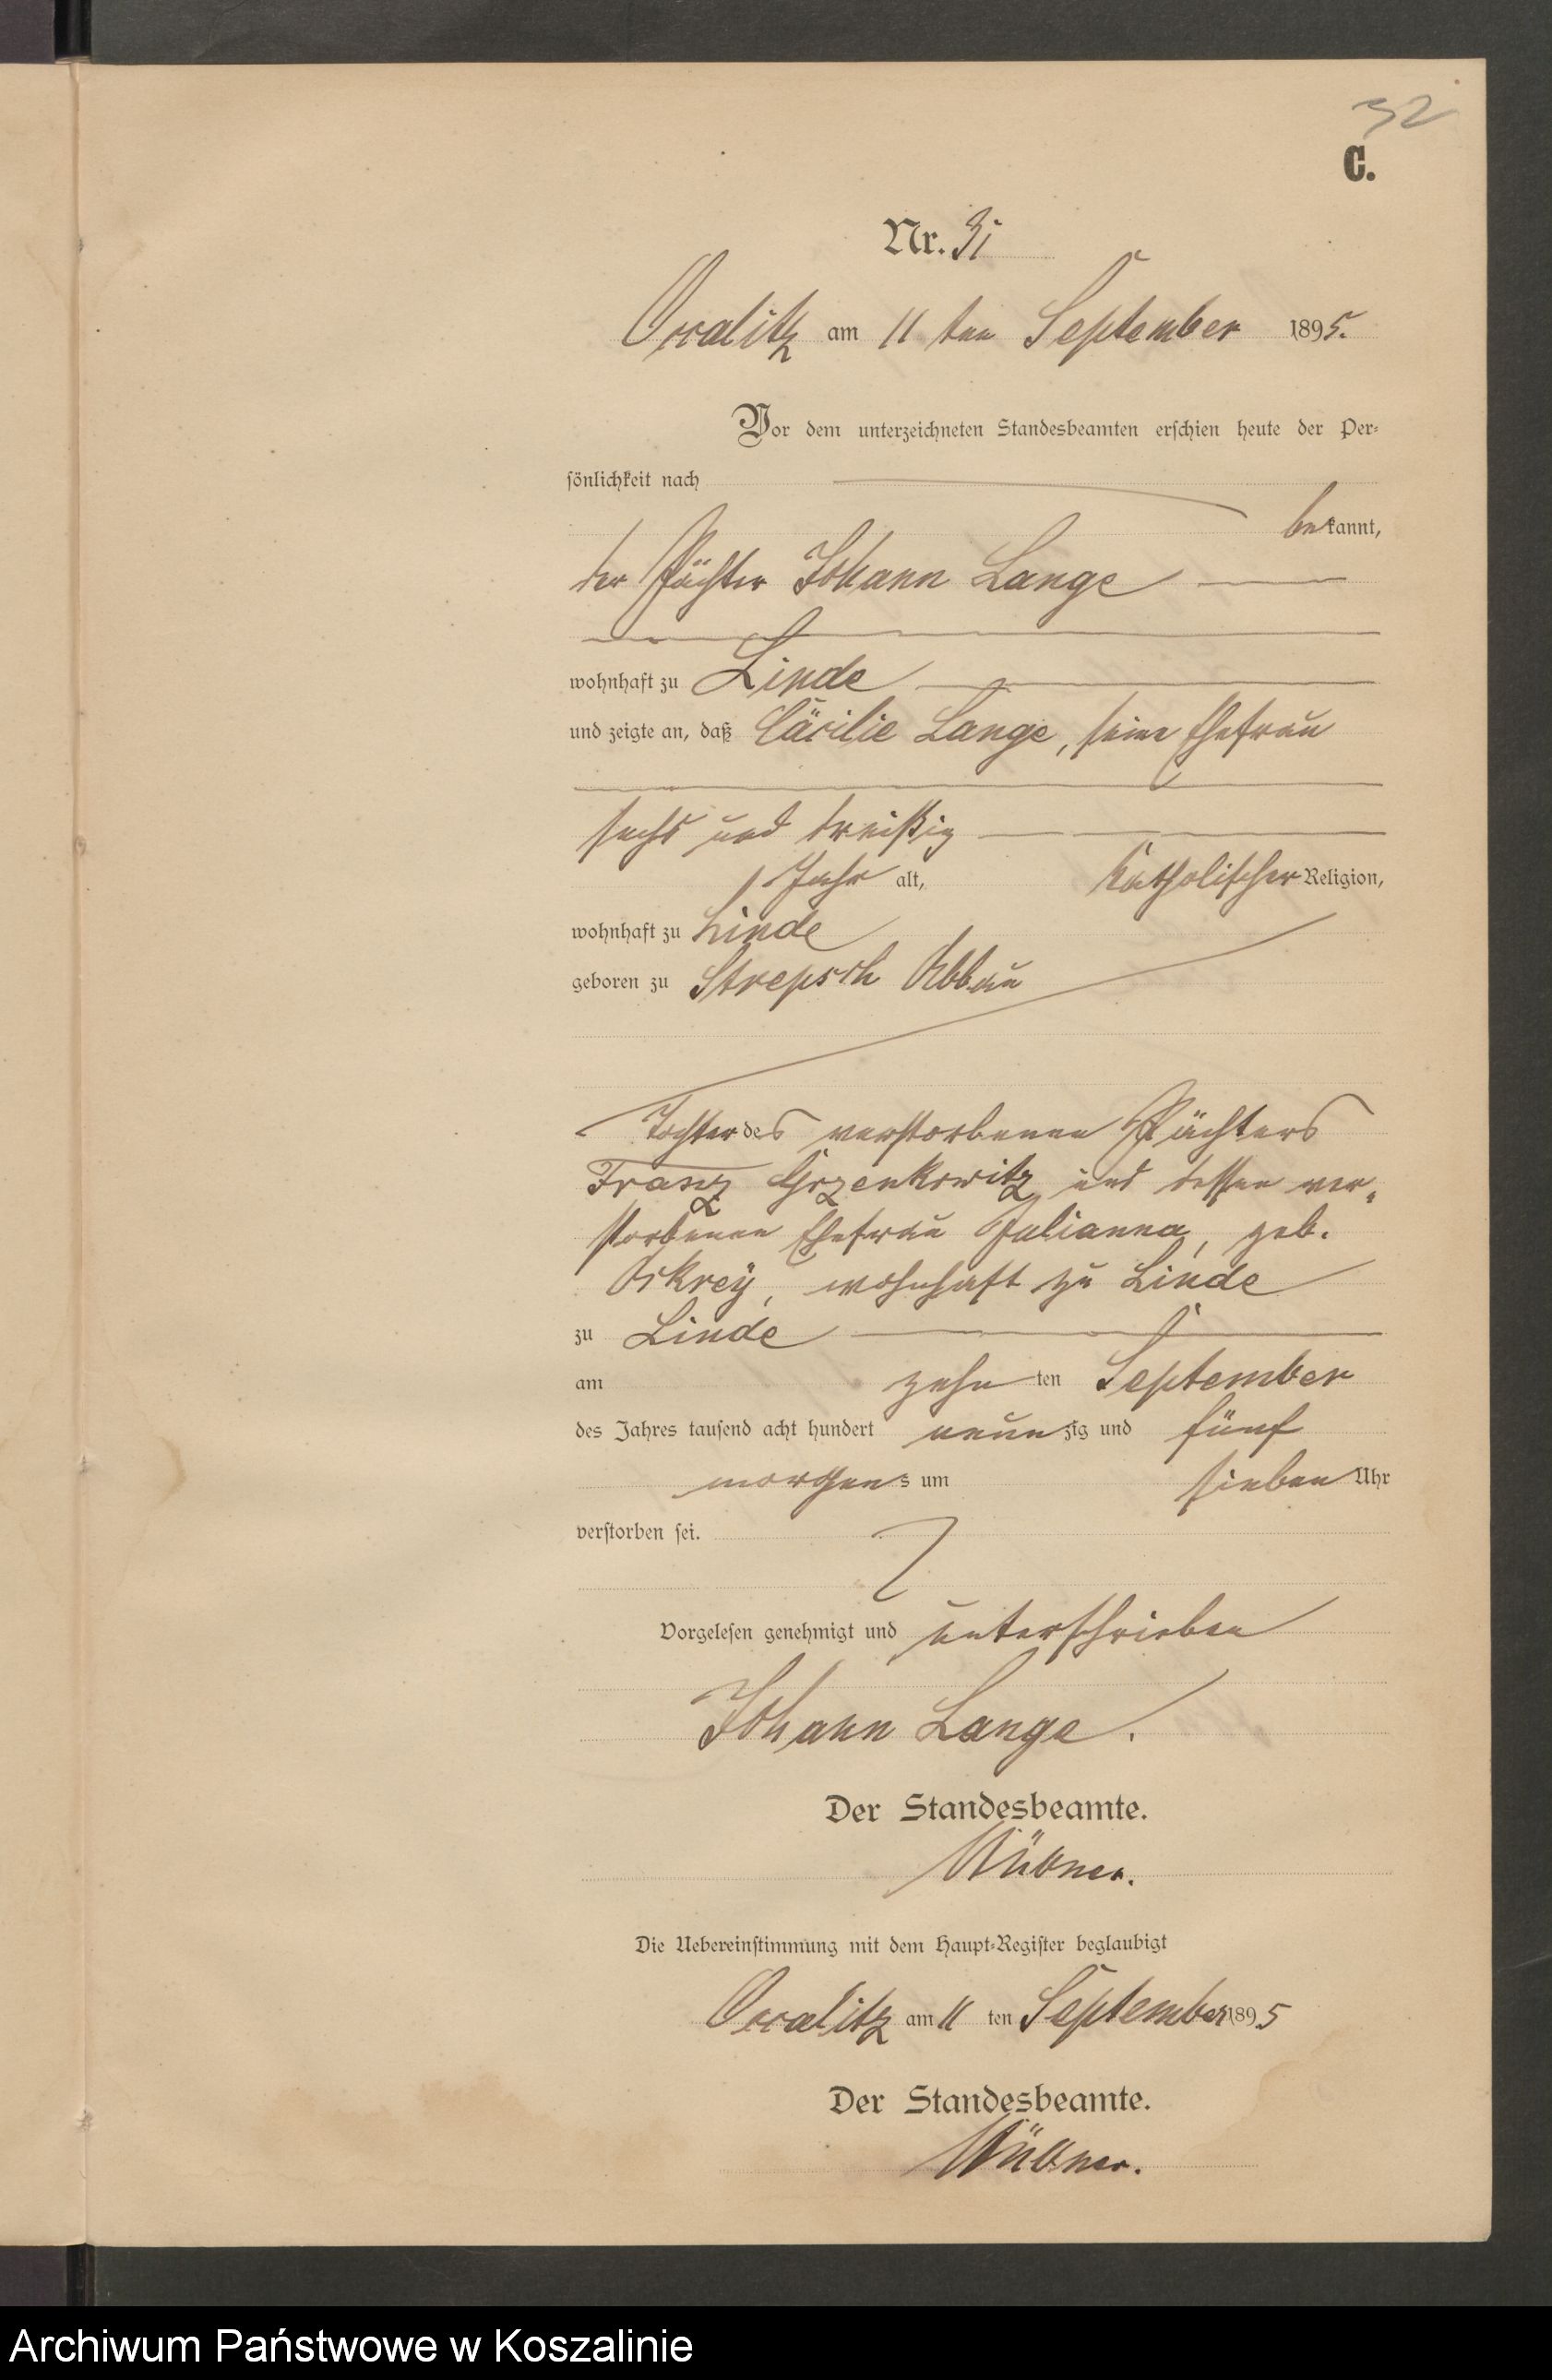 32
C.
Nr. 31
Occalitz am 11 ten September 1895.
Vor dem unterzeichneten Standesbeamten erschien heute der Per-
sönlichkeit nach
bekannt,
der Pächter Johann Lange
wohnhaft zu Linde
und zeigte an, daß Cäcilie Lange, seine Ehefrau
sechs und dreißig
Jahr alt, katholischer Religion,
wohnhaft zu Linde
geboren zu Strepsch Abbau
Tochter des verstorbenen Pächters
Franz Grzenkowitz und dessen ver-
storbenen Ehefrau Julianna, geb.
wohnhaft zu Linde
zu Linde
am zehn ten September
des Jahres tausend acht hundert neun zig und fünf
morgens um sieben Uhr
verstorben sei.
Vorgelesen genehmigt und unterschrieben
Johann Lange.
Der Standesbeamte.
Die Uebereinstimmung mit dem Haupt-Register beglaubigt
Occalitz am 11 ten September 1895
Der Standesbeamte.
Archiwum Państwowe w Koszalinie